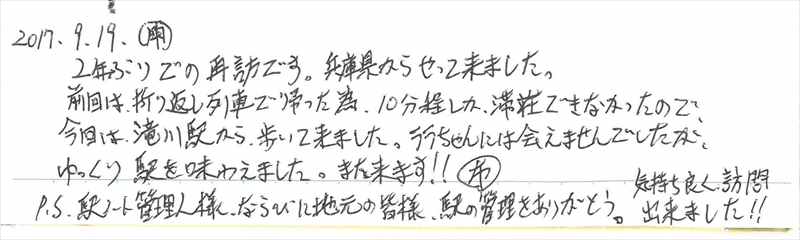 2017.9.19.㊌
2年ぶりでの再訪です。兵庫県からやって来ました。
前回は、折り返し列車で帰った為、10分程しか、滞在できなかったので、
今回は、滝川駅から、歩いて来ました。ララちゃんには会えませんでしたが、
ゆっくり駅を味わえました。また来ます!!
P.S. 駅ノート管理人様、ならびに地元の皆様、駅の管理をありがとう。気持ち良く訪問
出来ました!!